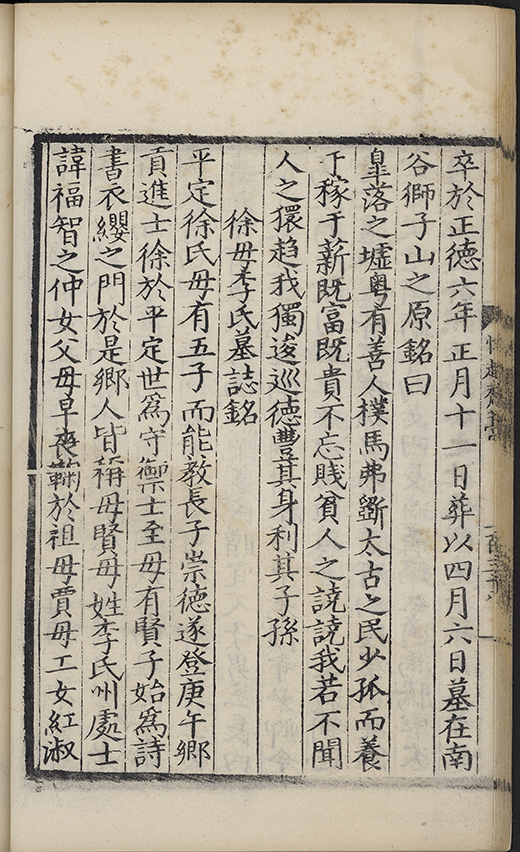 卒於正德六年正月十一日葬以四月六日墓在南
谷獅子山之原銘曰
皐落之墟粤有善人樸馬弗斵太古之民少孤而養
丁稼于薪既富既貴不忘賤貧人之譊譊我若不聞
人之獧趋我獨逡巡德豐其身利其子孫
徐母李氏墓誌銘
平定徐氏母有五子而能教長子崇德遂登庚午鄉
貢進士徐於平定世爲守禦士至母有賢子始爲詩
書衣纓之門於是鄉人皆稱母賢母姓李氏州處士
諱福智之仲女父母早喪鞠於祖母賈母工女紅淑